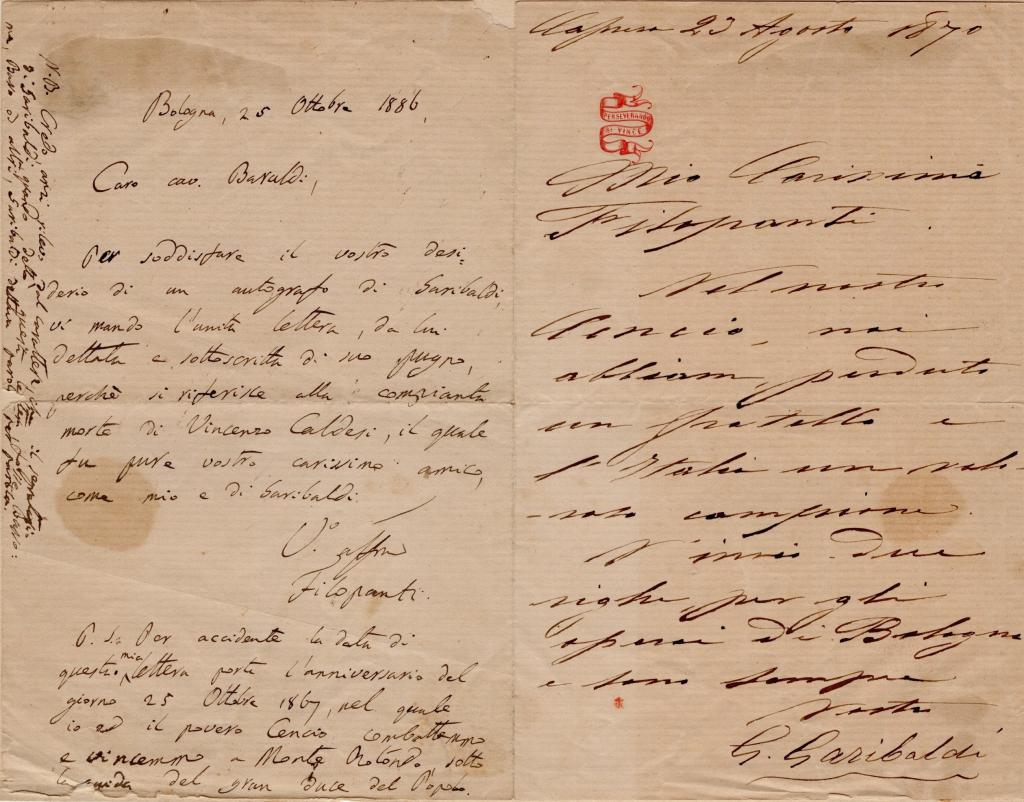 Bologna, 25 Ottobre 1886,
Caro cav. Baraldi,
Per soddisfare il vostro desi-
derio di un autografo di Garibaldi,
vi mando l'unita lettera, da lui
dettata e sottoscritta di suo pugno,
perchè si riferisce alla compianta
morte di Vincenzo Caldesi, il quale
fu pure vostro carissimo amico,
come mio e di Garibaldi.
V.º affmo
Filopanti.
P. S. Per accidente la data di
questa mia lettera porta l'anniversario del
giorno 25 Ottobre 1867, nel quale
io ed il povero Cencio combattemmo
e vincemmo a Monte Rotondo, sotto
la guida del gran duce del Popolo.
N.B. Credo anzi dal carattere che il segretario
di Garibaldi quando dettò questa lettera fosse Basso:
ma, Basso od altri, Garibaldi dettava parola per parola.
Caprera 23 Agosto 1870
PERSEVERANDO
SI VINCE
Mio Carissimo
Filopanti.
Nel nostro
Cencio, noi
abbiam perduto
un fratello e
l'Italia un valo-
-roso campione.
V'invio due
righe per gli
operai di Bologna
e sono sempre
Vostro
G. Garibaldi